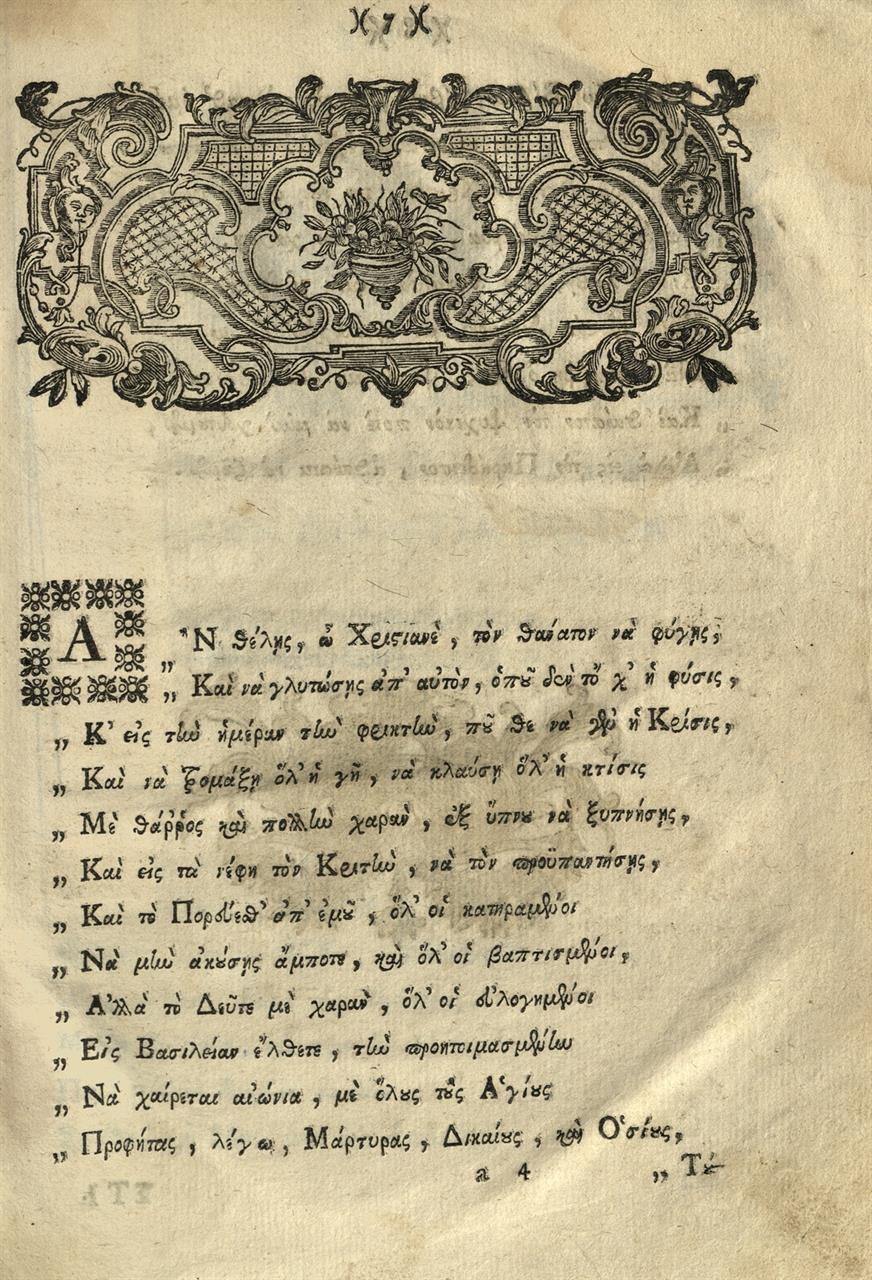 )( 7 )(
ΑʺΝ θέλῃς, ὦ Χριστιανὲ, τὸν θάνατον νὰ φύγῃς,
„ Καὶ νὰ γλυτώσῃς ἀπ' αὐτὸν, ὁποῦ δὲν τὄχ' ἡ φύσις,
„ Κ' εἰς τὴν ἡμέραν τὴν φρικτὴν, ποῦ θε νὰ ἔλθῃ ἡ Κρίσις,
„ Καὶ νὰ τρομάξῃ ὅλ' ἡ γῆ, νὰ κλαύσῃ ὅλ' ἡ κτίσις
„ Μὲ θάῤῥος καὶ πολλὴν χαρὰν, ἐξ ὕπνου νὰ ξυπνήσῃς,
„ Καὶ εἰς τὰ νέφη τὸν Κριτὴν, νὰ τὸν προϋπαντήσῃς,
„ Καὶ τὸ Πορεύεσθ' ἀπ' ἐμοῦ, ὅλ' οἱ κατηραμένοι
„ Νὰ μὴν ἀκούσῃς ἄμποτε, καὶ ὅλ' οἱ βαπτισμένοι,
„ Ἀλλὰ τὸ Δεῦτε μὲ χαρὰν, ὅλ' οἱ εὐλογημένοι
„ Εἰς Βασιλείαν ἔλθετε, τὴν προητοιμασμένην
„ Νὰ χαίρεται αἰώνια, μὲ ὅλους τοὺς Ἁγίους
„ Προφήτας, λέγω, Μάρτυρας, Δικαίους, καὶ Ὁσίους,
a 4 „ Τὰ